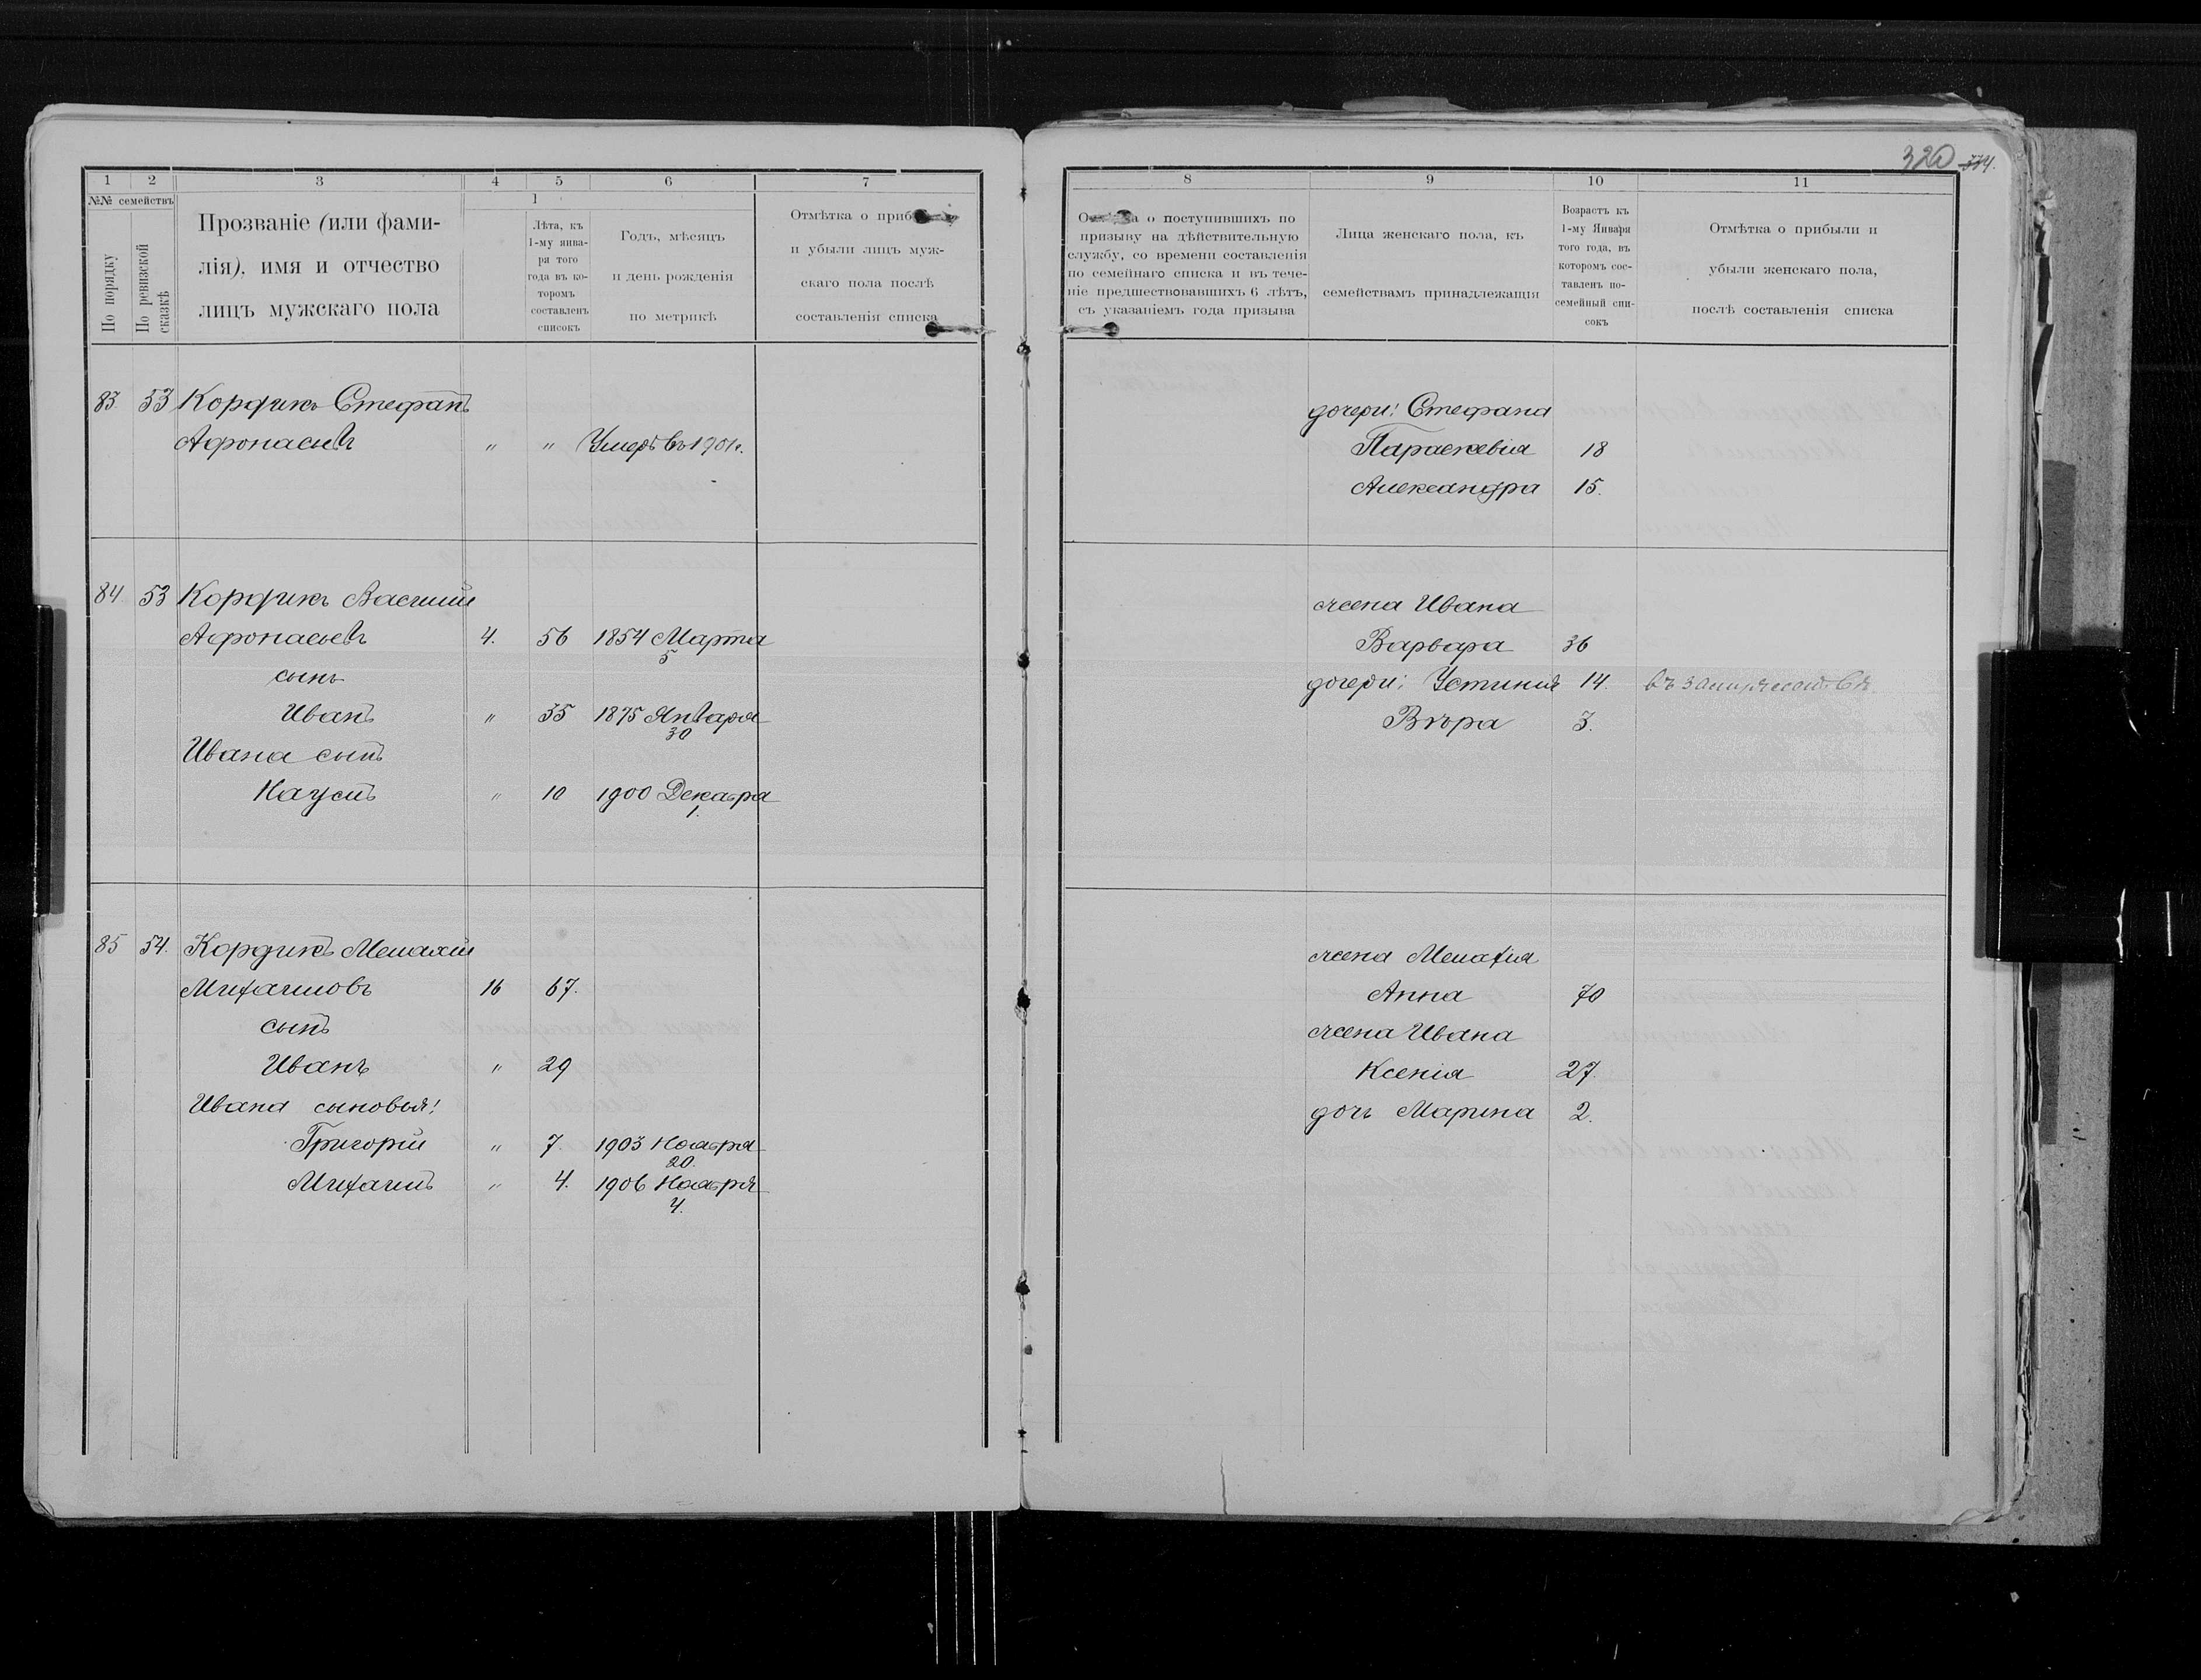 320 334.
1 2 3 4 5 6 7
№№ семействъ
По порядку
По ревизской сказкѣ
Прозваніе (или фами-
лія), имя и отчество
лицъ мужскаго пола
1
Лѣта, къ
1-му янва-
ря того
года въ ко-
торомъ
составленъ
списокъ
Годъ, мѣсяцъ
и день рожденія
по метрикѣ
Отмѣтка о
и убыли лицъ муж-
скаго пола послѣ
составленія списка
83 53 Кордикъ Стефанъ
Афонасьев " " Умеръ въ 1901 г.
84 53 Кордикъ Василий
Афонасьев 4. 56 1854 Марта
5
сынъ
Иванъ " 35 1875 Января
30
Ивана сынъ
Наумъ " 10 1900 Декабря
1
85 54. Кордикъ
Михаиловъ 16 67.
сынъ
Иванъ " 29
Ивана сыновья:
Григорій " 7. 1903 Ноабря
20.
Михаилъ " 4. 1906 Ноабря
4.
8 9 10 11
о поступившихъ по
призыву на дѣйствительную
службу, со времени составленія
по семейнаго списка и въ тече-
ніе предшествовавшихъ 6 лѣтъ,
съ указаніемъ года призыва
Лица женскаго пола, къ
семействамъ принадлежащія
Возрастъ къ
1-му Января
того года, въ
которомъ сос-
тавленъ по-
семейный спи-
сокъ
Отмѣтка о прибыли и
убыли женскаго пола,
послѣ составленія списка
дочери: Стефана
Параскевія 18
Александра 15.
жена Ивана
Варвара 36
дочери: Устинія 14.
Вѣра 3.
жена
Анна 70
жена Ивана
Ксенія 27.
дочь Марина 2.